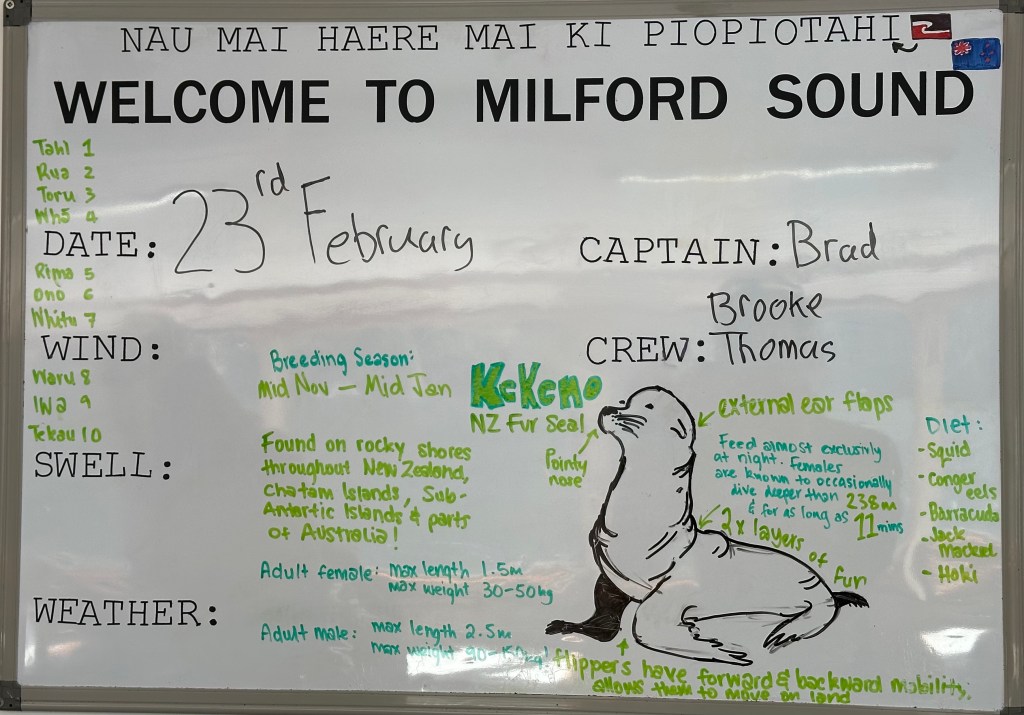 NAU MAI HAERE MAI KI PIOPIOTAHI
WELCOME TO MILFORD SOUND
Tahi 1
Rua 2
Toru 3
Wh5 4
DATE: 23rd February
Rima 5
Ono 6
Whitu 7
WIND:
Waru 8
Iwa 9
Tekau 10
SWELL:
WEATHER:
CAPTAIN: Brad
Brooke
CREW: Thomas
Breeding Season:
Mid Nov – Mid Jan
Found on rocky shores
throughout New Zealand,
Chatam Islands, Sub-
Antartic Islands & parts
of Australia!
Adult female: max length 1.5m
max weight 30-50kg
Adult male: max length 2.5m
max weight 90-150kg!
KeKeno
NZ Fur Seal
Pointy
nose
external ear flaps
Feed almost exclusively
at night. Females
are known to occasionally
dive deeper than 238m
& for as long as 11 mins
2x layers
of
fur
flippers have forward & backward mobility,
allows them to move on land
Diet:
- Squid
- Conger
eels
- Barracuda
- Jack
Mackerel
- Hoki